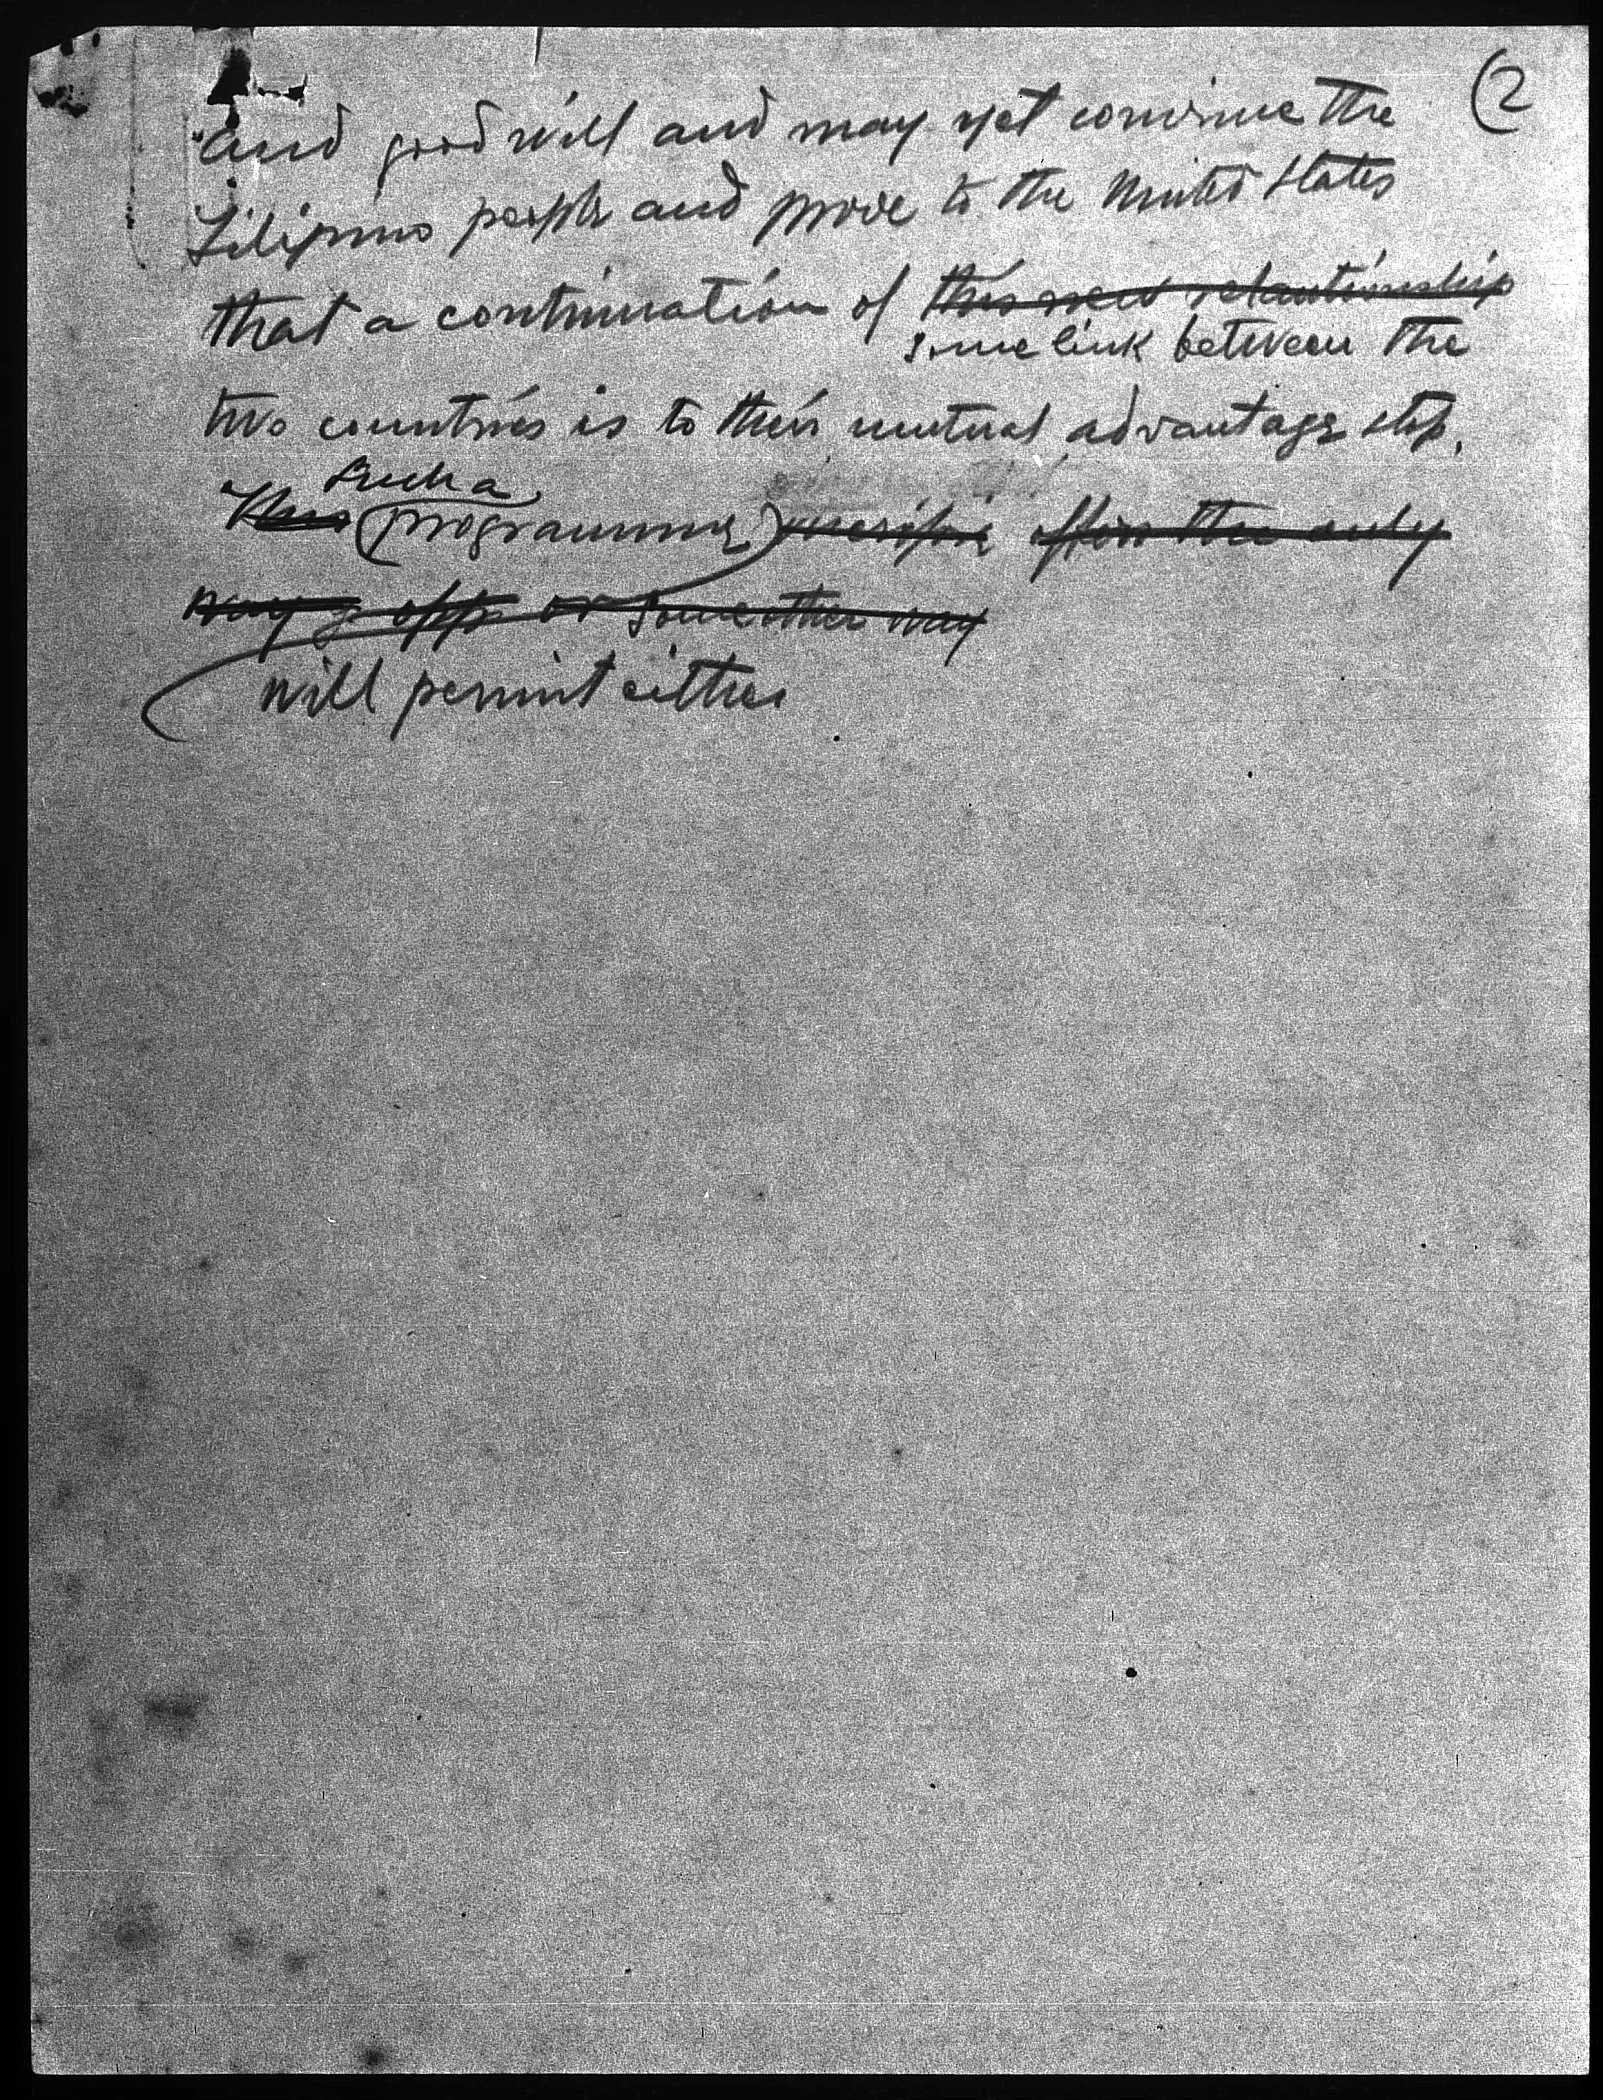 2
and good will and may yet convince the
Filipino people and prove to the United States
that a continuation of this new relationship
some link between the
two countries is to their mutual advantage stop.
Such a
This programme offers the only
way or some other way
will permit either